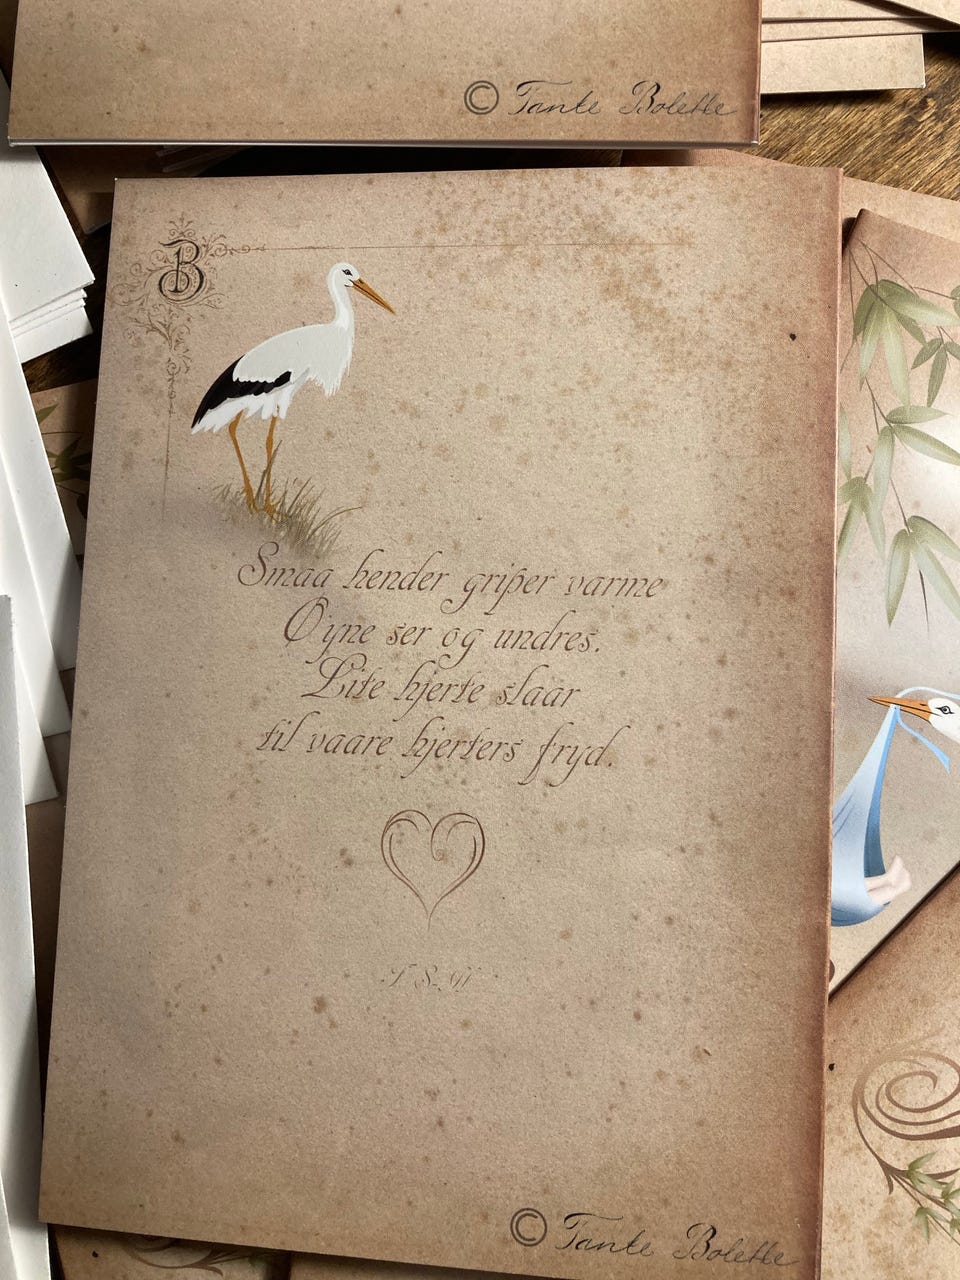 © Tante Bolette
B
Smaa hender griper varme
Øyne ser og undres.
Lite hjerte slaar
til vaare hjerters fryd.
© Tante Bolette